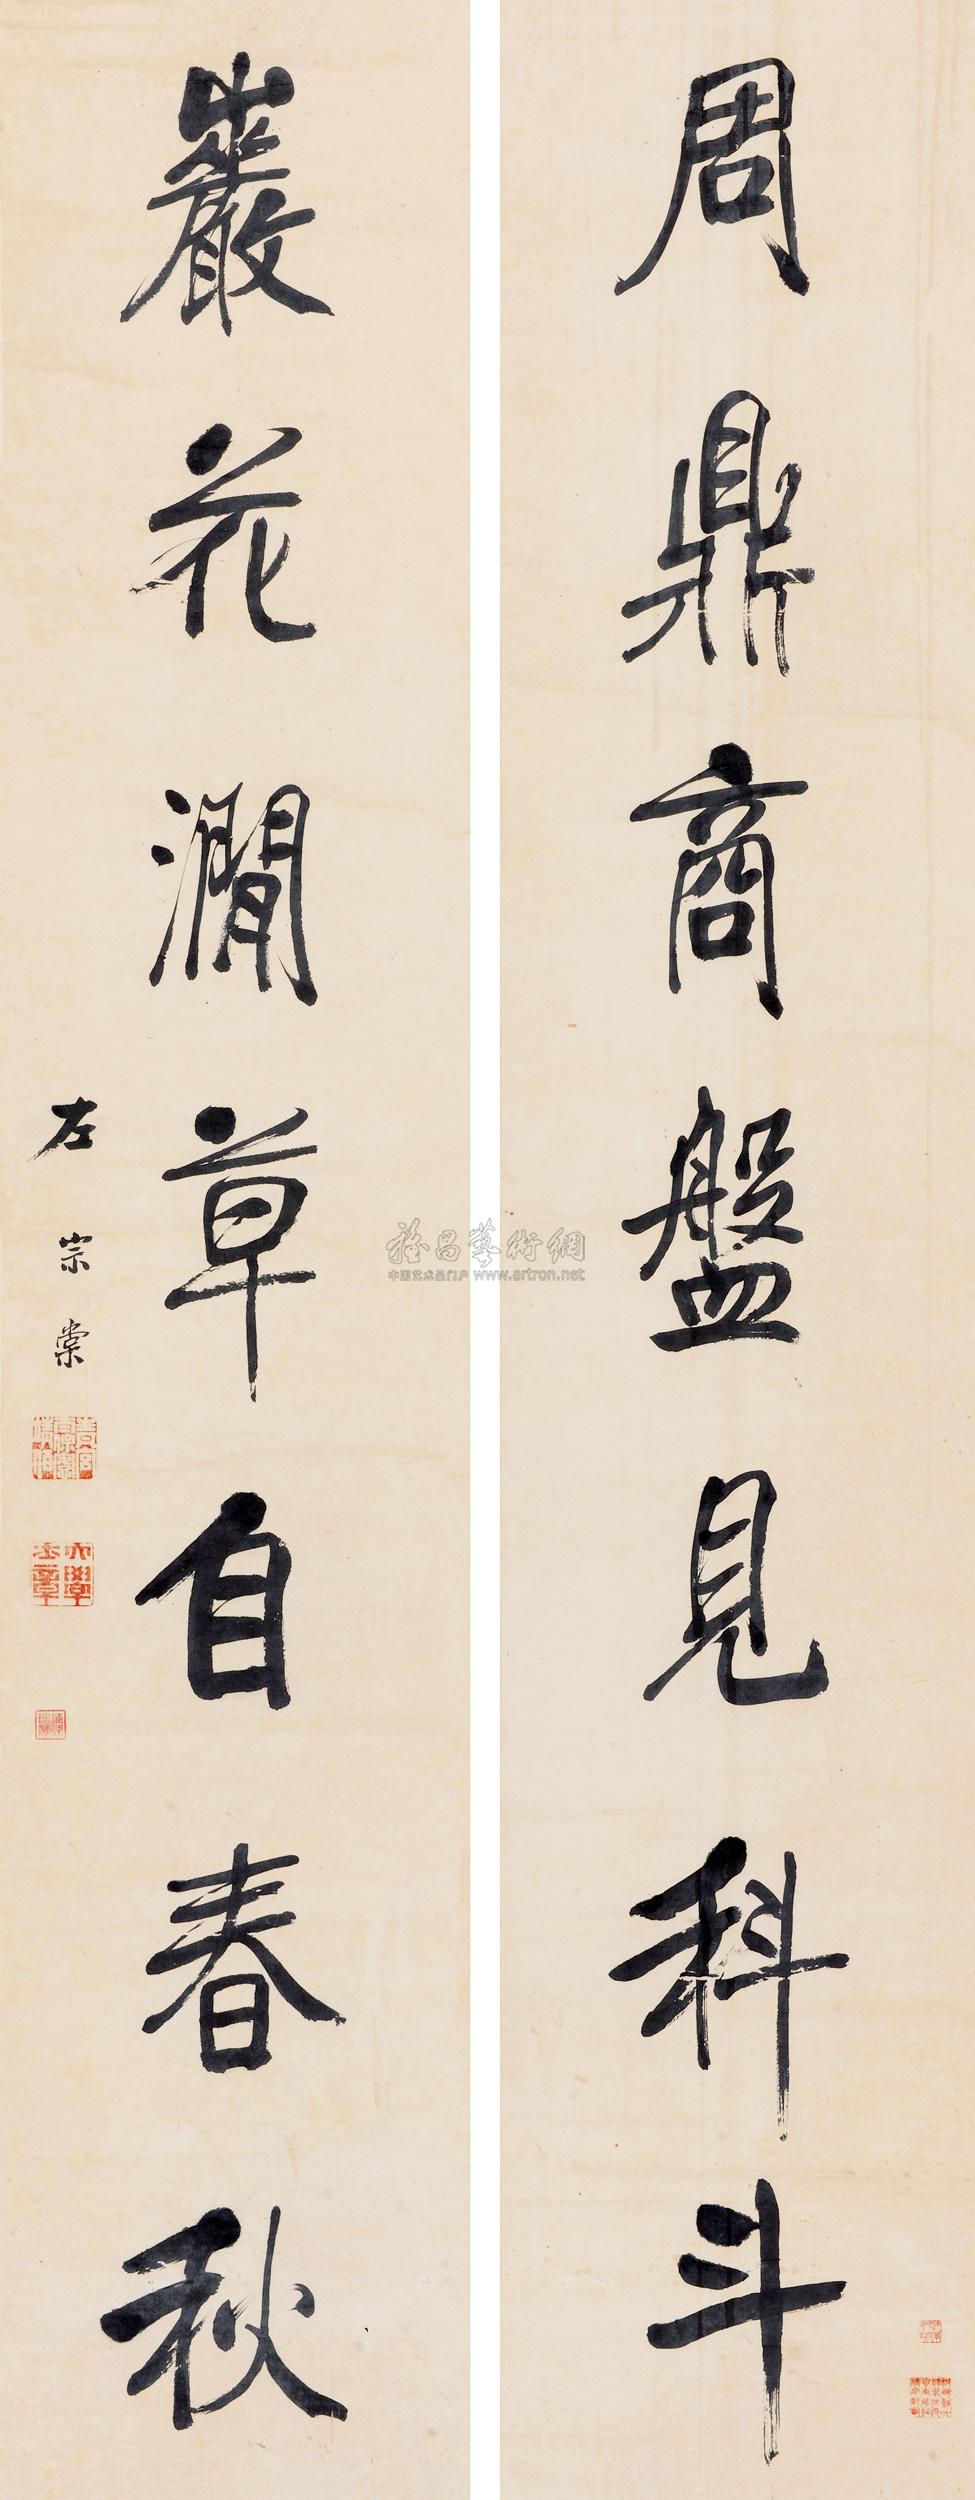 周鼎商盤見科斗
巖花澗草自春秋
左宗棠
雅昌藝術網
中国艺术品门户 www.artron.net